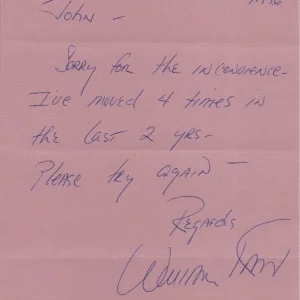 John -
Sorry for the inconvience -
I've moved 4 times in
the last 2 yrs -
Please try again -
Regards
William